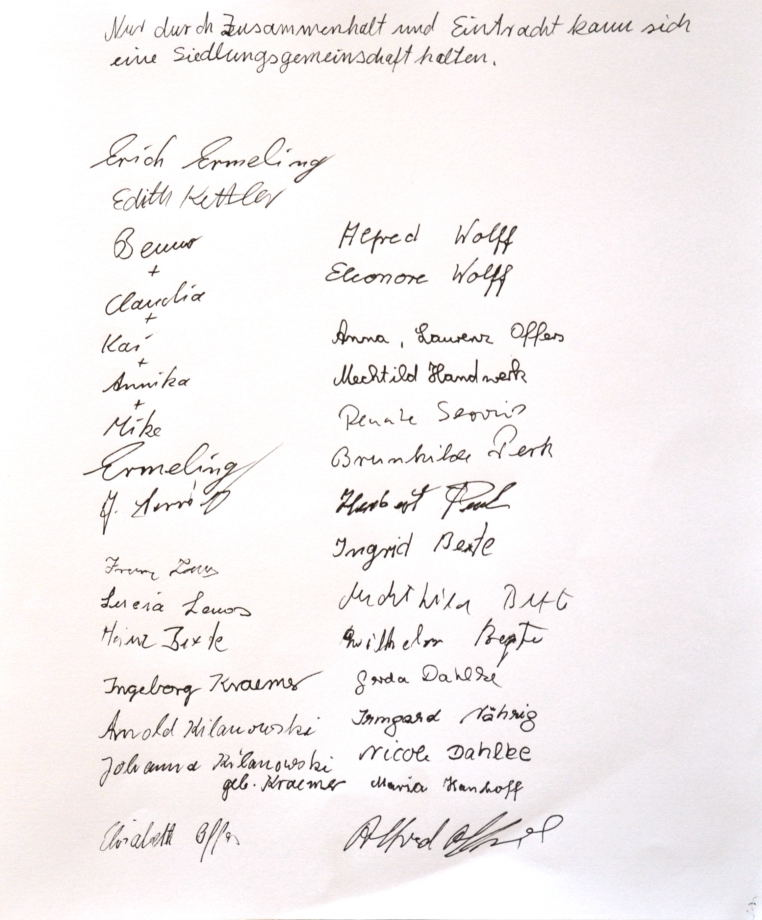 Nur durch Zusammenhalt und Eintracht kann sich
eine Siedlungsgemeinschaft halten.
Erich Ermeling
Edith Kettler
Benno
+
Claudia
+
Kai
+
Annika
+
Mike
Ermeling
Franz
Lucia
Heinz Bexte
Ingeborg Kraemer
Arnold Kilanowski
Johanna Kilanowski
geb. Kraemer
Elisabeth Offers
Alfred Wolff
Eleonore Wolff
Anna, Laurenz Offers
Mechtild Handwerk
Renate
Brunhilde Perk
Herbert
Ingrid Bexte
Mechthild
Wilhelm Bexte
Gerda Dahlke
Irmgard Nährig
Nicole Dahlke
Maria
Alfred